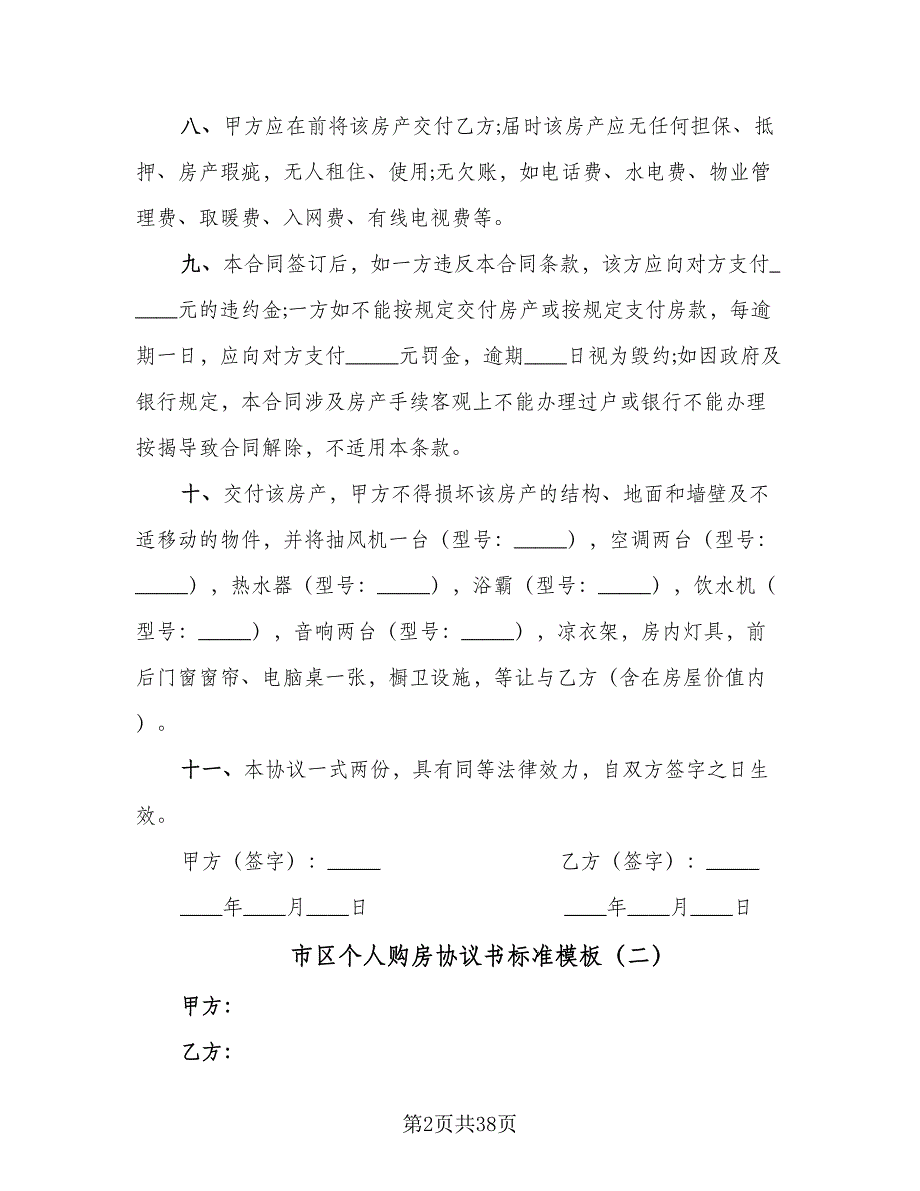 八、甲方应在前将该房产交付乙方;届时该房产应无任何担保、抵
押、房产瑕疵，无人租住、使用;无欠账，如电话费、水电费、物业管
理费、取暖费、入网费、有线电视费等。
九、本合同签订后，如一方违反本合同条款，该方应向对方支付_
____元的违约金;一方如不能按规定交付房产或按规定支付房款，每逾
期一日，应向对方支付_____元罚金，逾期____日视为毁约;如因政府及
银行规定，本合同涉及房产手续客观上不能办理过户或银行不能办理
按揭导致合同解除，不适用本条款。
十、交付该房产，甲方不得损坏该房产的结构、地面和墙壁及不
适移动的物件，并将抽风机一台（型号：_____），空调两台（型号：
_____），热水器（型号：_____），浴霸（型号：_____），饮水机（
型号：_____），音响两台（型号：_____），凉衣架，房内灯具，前
后门窗窗帘、电脑桌一张，橱卫设施，等让与乙方（含在房屋价值内
）。
十一、本协议一式两份，具有同等法律效力，自双方签字之日生
效。
甲方（签字）：_____ 乙方（签字）：_____
____年____月____日 ____年____月____日
市区个人购房协议书标准模板（二）
甲方：
乙方：
第2页共38页